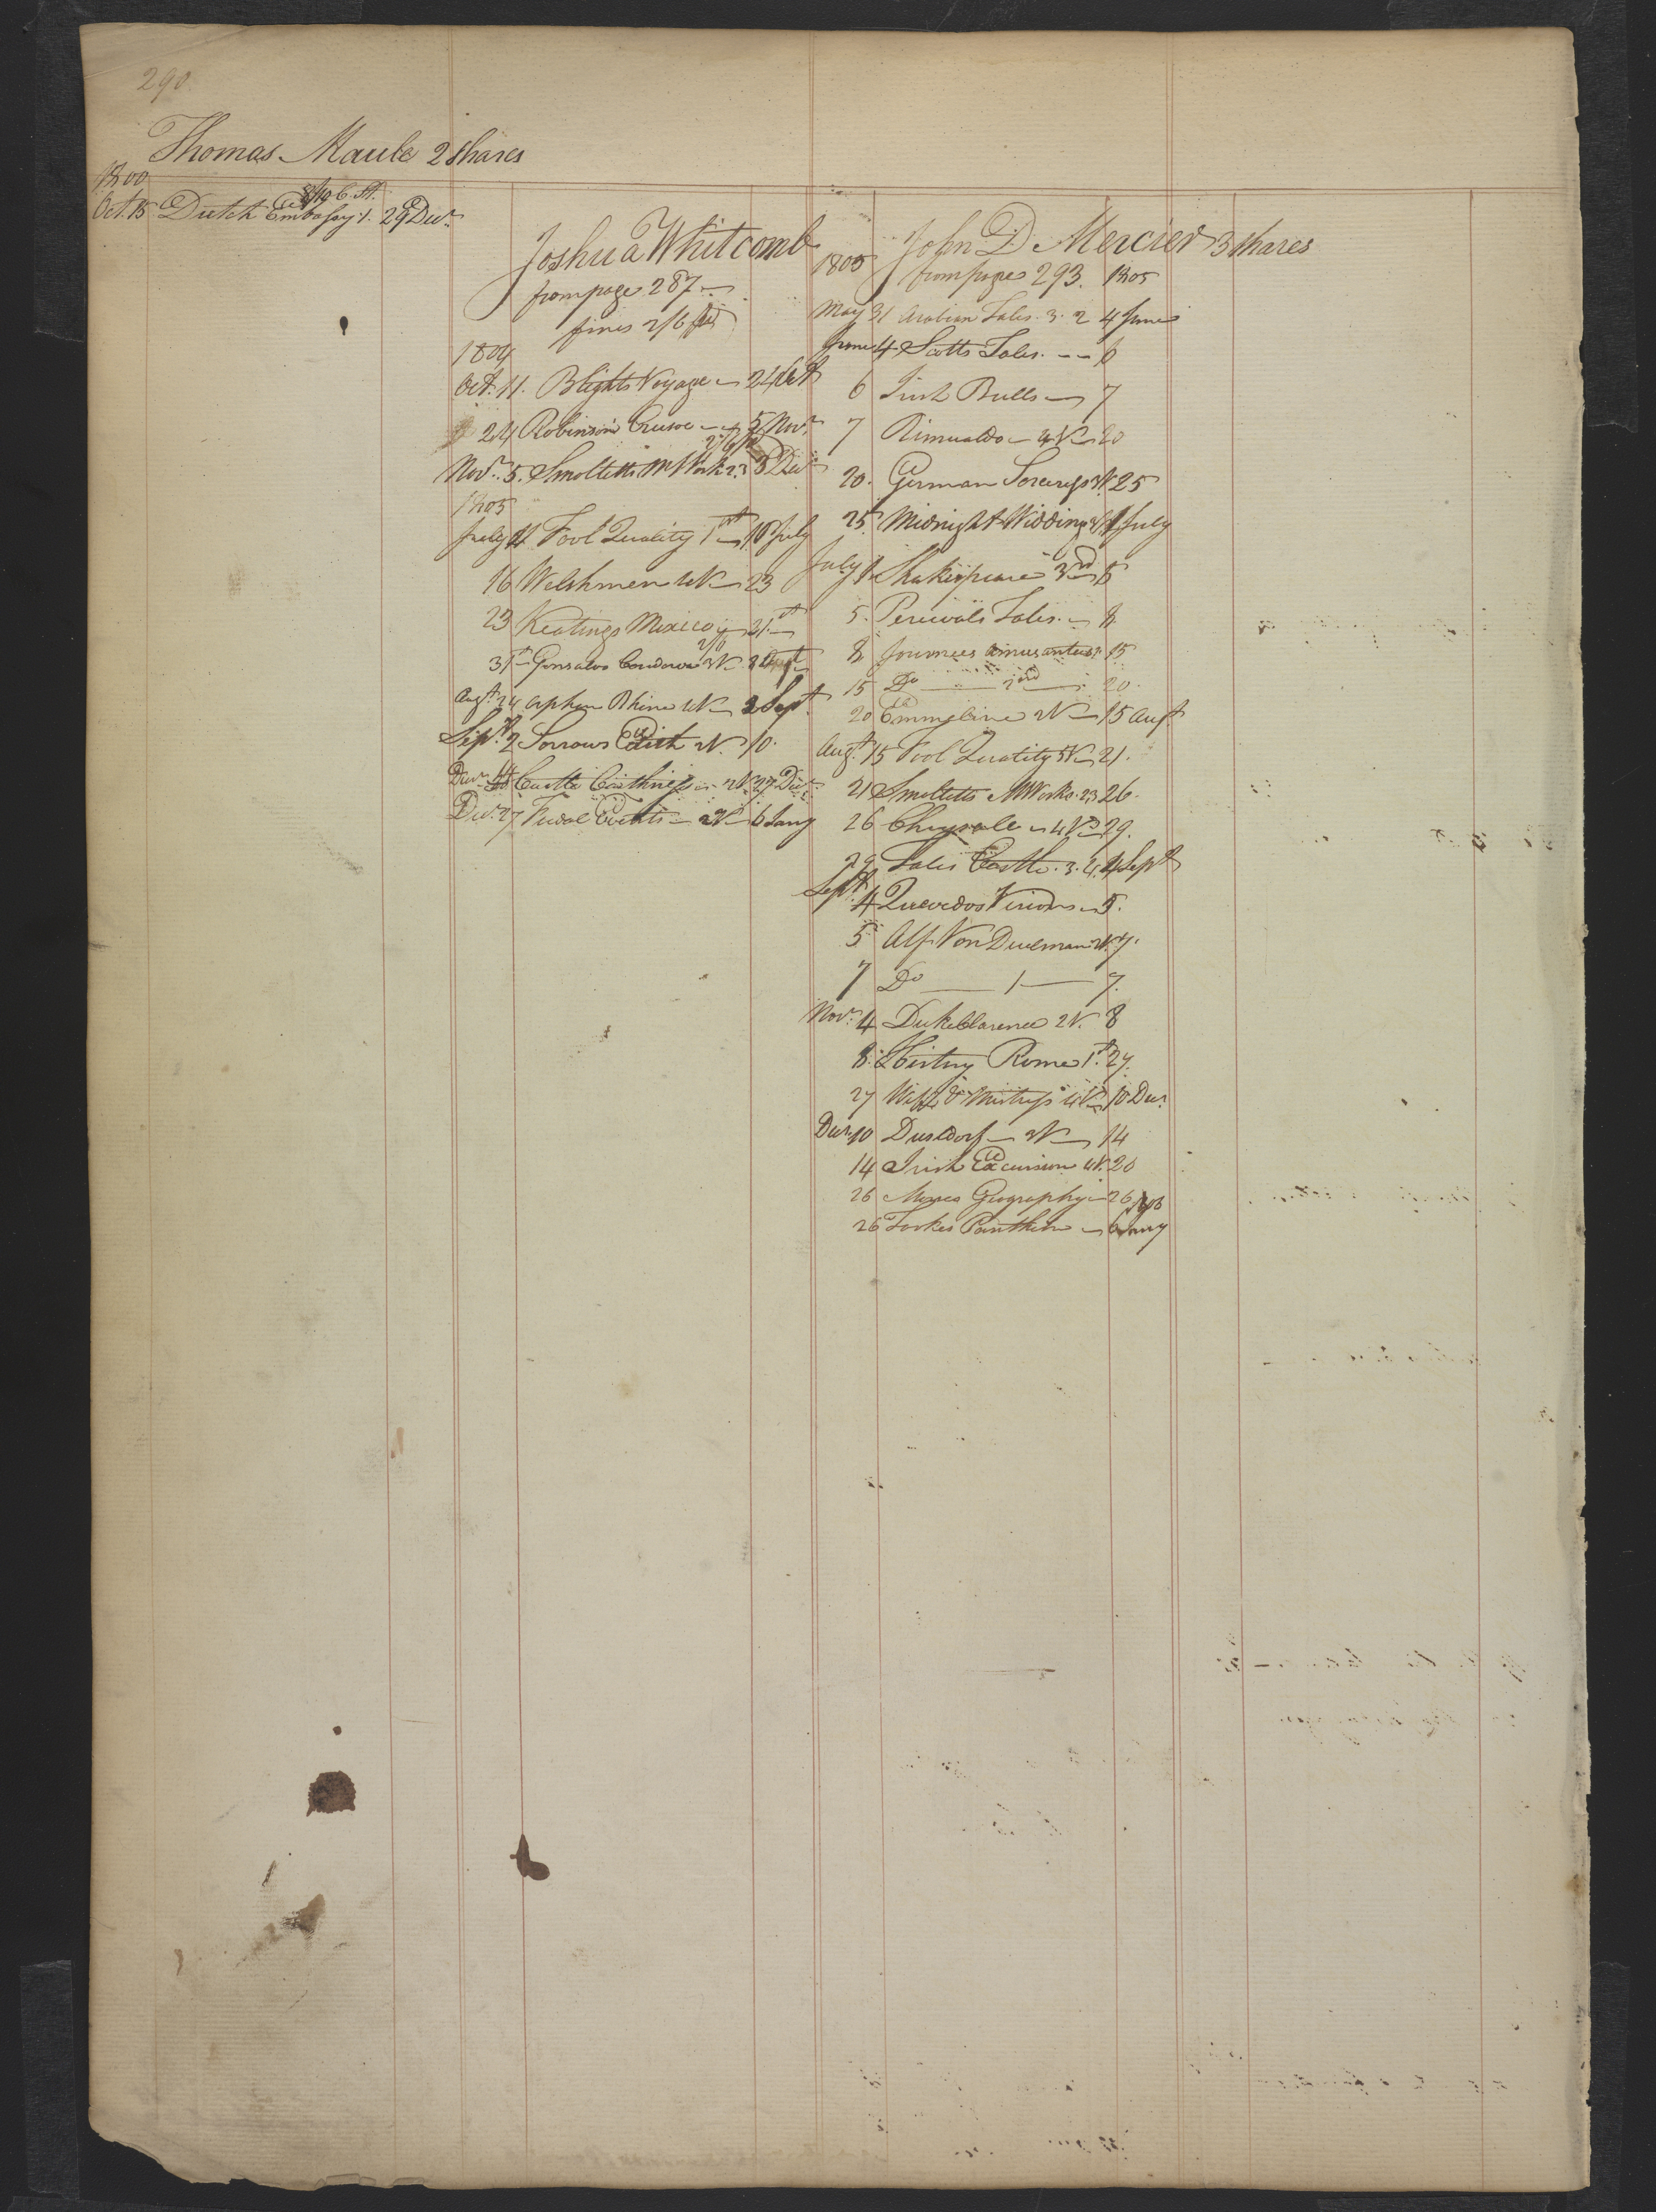 290
Thomas Maule 2 Shares
1800
8/10 6. St.
Oct. 15 Dutch Embassy 1. 29 Decr.
Joshua Whitcomb
from page 287
fines 2/6 pd
1804
Oct. 11. Blighs Voyage 24 Oct
24 Robinson Crusoe 5 Novr.
2/6 pd
Novr. 5. Smolletts M Works 2.3 8 Decr
1805
July 11 Fool Quality 1st 16 July
16 Welshmen 4V 23
23 Keatings Mexico 31st
2/0
31st Gonsalvo Cordova 3V 8 Augt
Augt. 24 Orphan Rhine 4V 2 Sept.
Sept. 2 Sorrows Edith 2V. 10.
Decr 14 Castle Caithness 2V 27 Decr.
Decr. 27 Feudal Events 2V 6 Jany
John D Mercier 3 shares
1805 from page 293. 1805
May 31 Arabian Tales. 3. 2 4 June
June 4 Scotts Tales. 6
6 Irish Bulls 7
7 Rimualdo 4V 20
20. German Sorceress 3V. 25
25 Midnight Wedding 1 July
July 1. Shakespeare 3rd 5
5. Percivals Tales. 8
8 Journees amusantes 1. 15
15 Do 2nd 20.
20 Emmeline 2V 15 Augt
Augt. 15 Fool Quality 5V 21.
21 Smolletts MWorks. 2.3 26.
26 Chrysale 4V 29.
29 Tales Castle. 3. 4. 4 Sept
Sept. 4 Quevedos Visions 5.
5 Alf. Von Duelman 2V. 7.
7 Do 1 7.
Novr. 4 Duke Clarence 2V. 8
8. History Rome 1st. 27.
27 Wife & Mistress 4V 10 Decr.
Decr. 10 Dusseldorf 2V 14
14 Irish Excursion 4V. 20
26 Morses Geography 26 1806
26 Tookes Pantheon 6 Jany